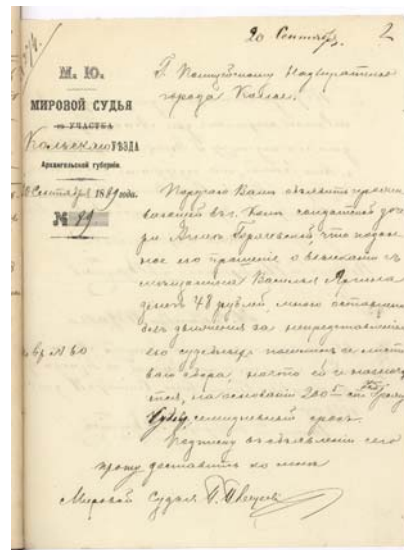 20 Сентября. 2
М. Ю.
МИРОВОЙ СУДЬЯ
УЧАСТКА
Кольскаго УѢЗДА
Архангельской губерніи.
20 Сентября 1889 года.
№ 29
Г. Полицейскому Надзирателю
города Колы.
Поручаю Вамъ объявить прожи-
вающей въ г. Колѣ солдатской доче-
ри, что подан-
ное ею прошеніе о взысканіи съ
мѣщанина Василья
денегъ 48 рублей, мною оставлено
безъ движенія за непредставленіе
ею судебныхъ пошлинъ и листо-
ваго сбора, на что ей и назнача-
ется, на основаніи 200 ст.
Судопр. семидневный срокъ.
Подписку въ объявленіи сего
прошу доставить ко мнѣ
Мировой Судья